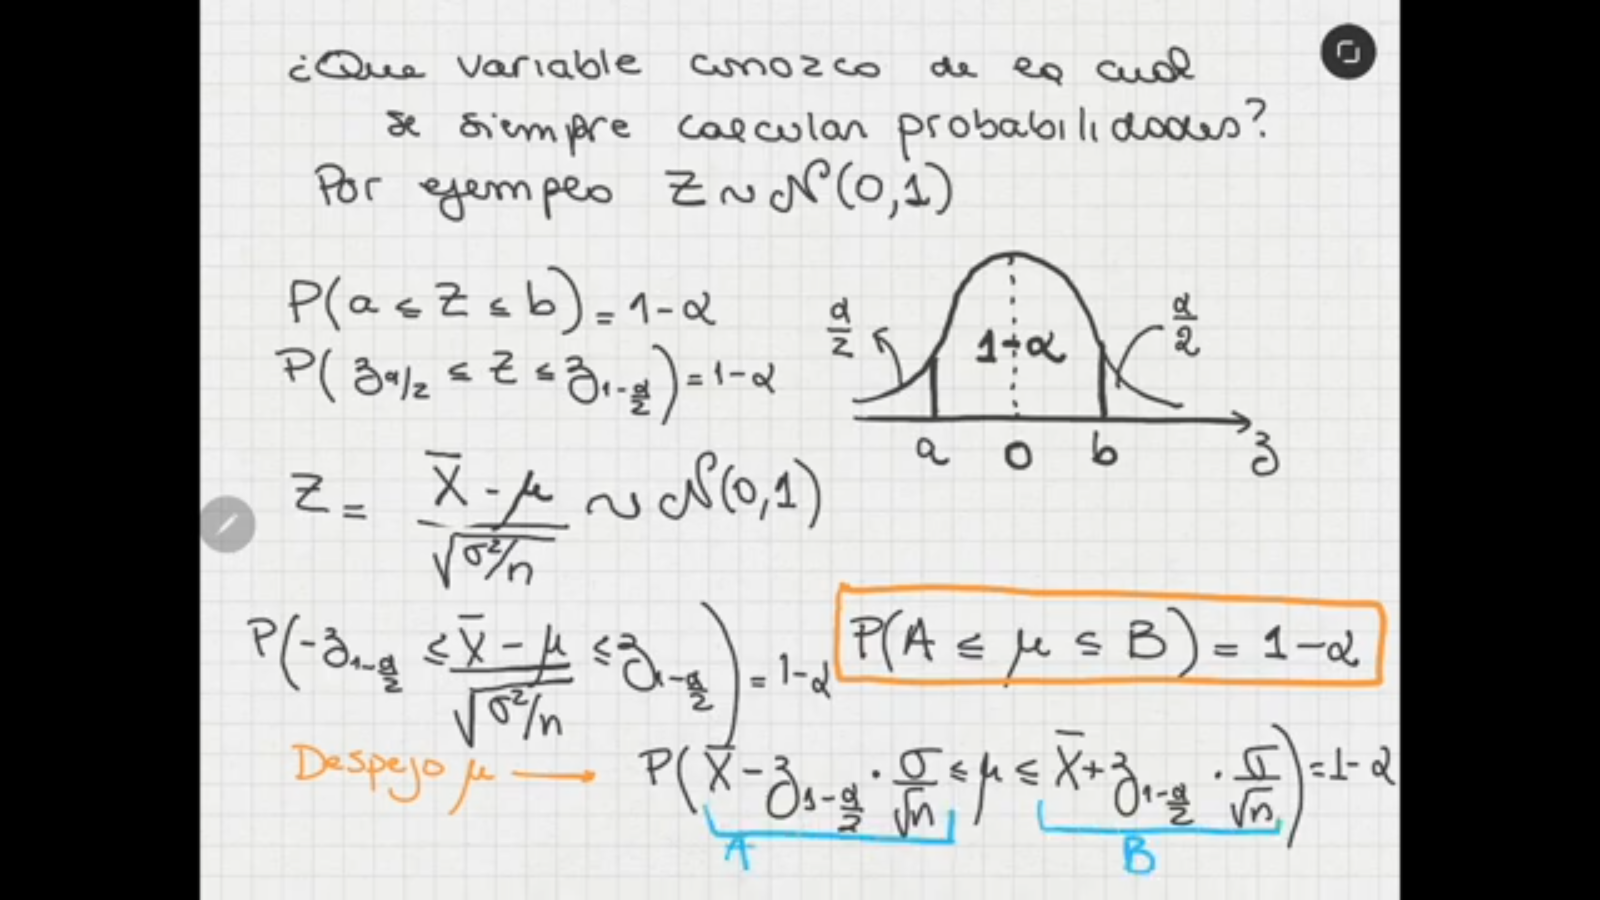 ¿Que variable conozco de la cual
se siempre calcular probabilidades?
Por ejemplo Z ~ N(0,1)
P(a ≤ Z ≤ b) = 1-α
P(z_{α/2} ≤ Z ≤ z_{1-α/2}) = 1-α
α/2
1-α
α/2
a 0 b z
Z = (X̄ - μ)/√(σ²/n) ~ N(0,1)
P(-z_{1-α/2} ≤ (X̄ - μ)/√(σ²/n) ≤ z_{1-α/2}) = 1-α
P(A ≤ μ ≤ B) = 1-α
Despejo μ →
P(X̄ - z_{1-α/2} · σ/√n ≤ μ ≤ X̄ + z_{1-α/2} · σ/√n) = 1-α
A B